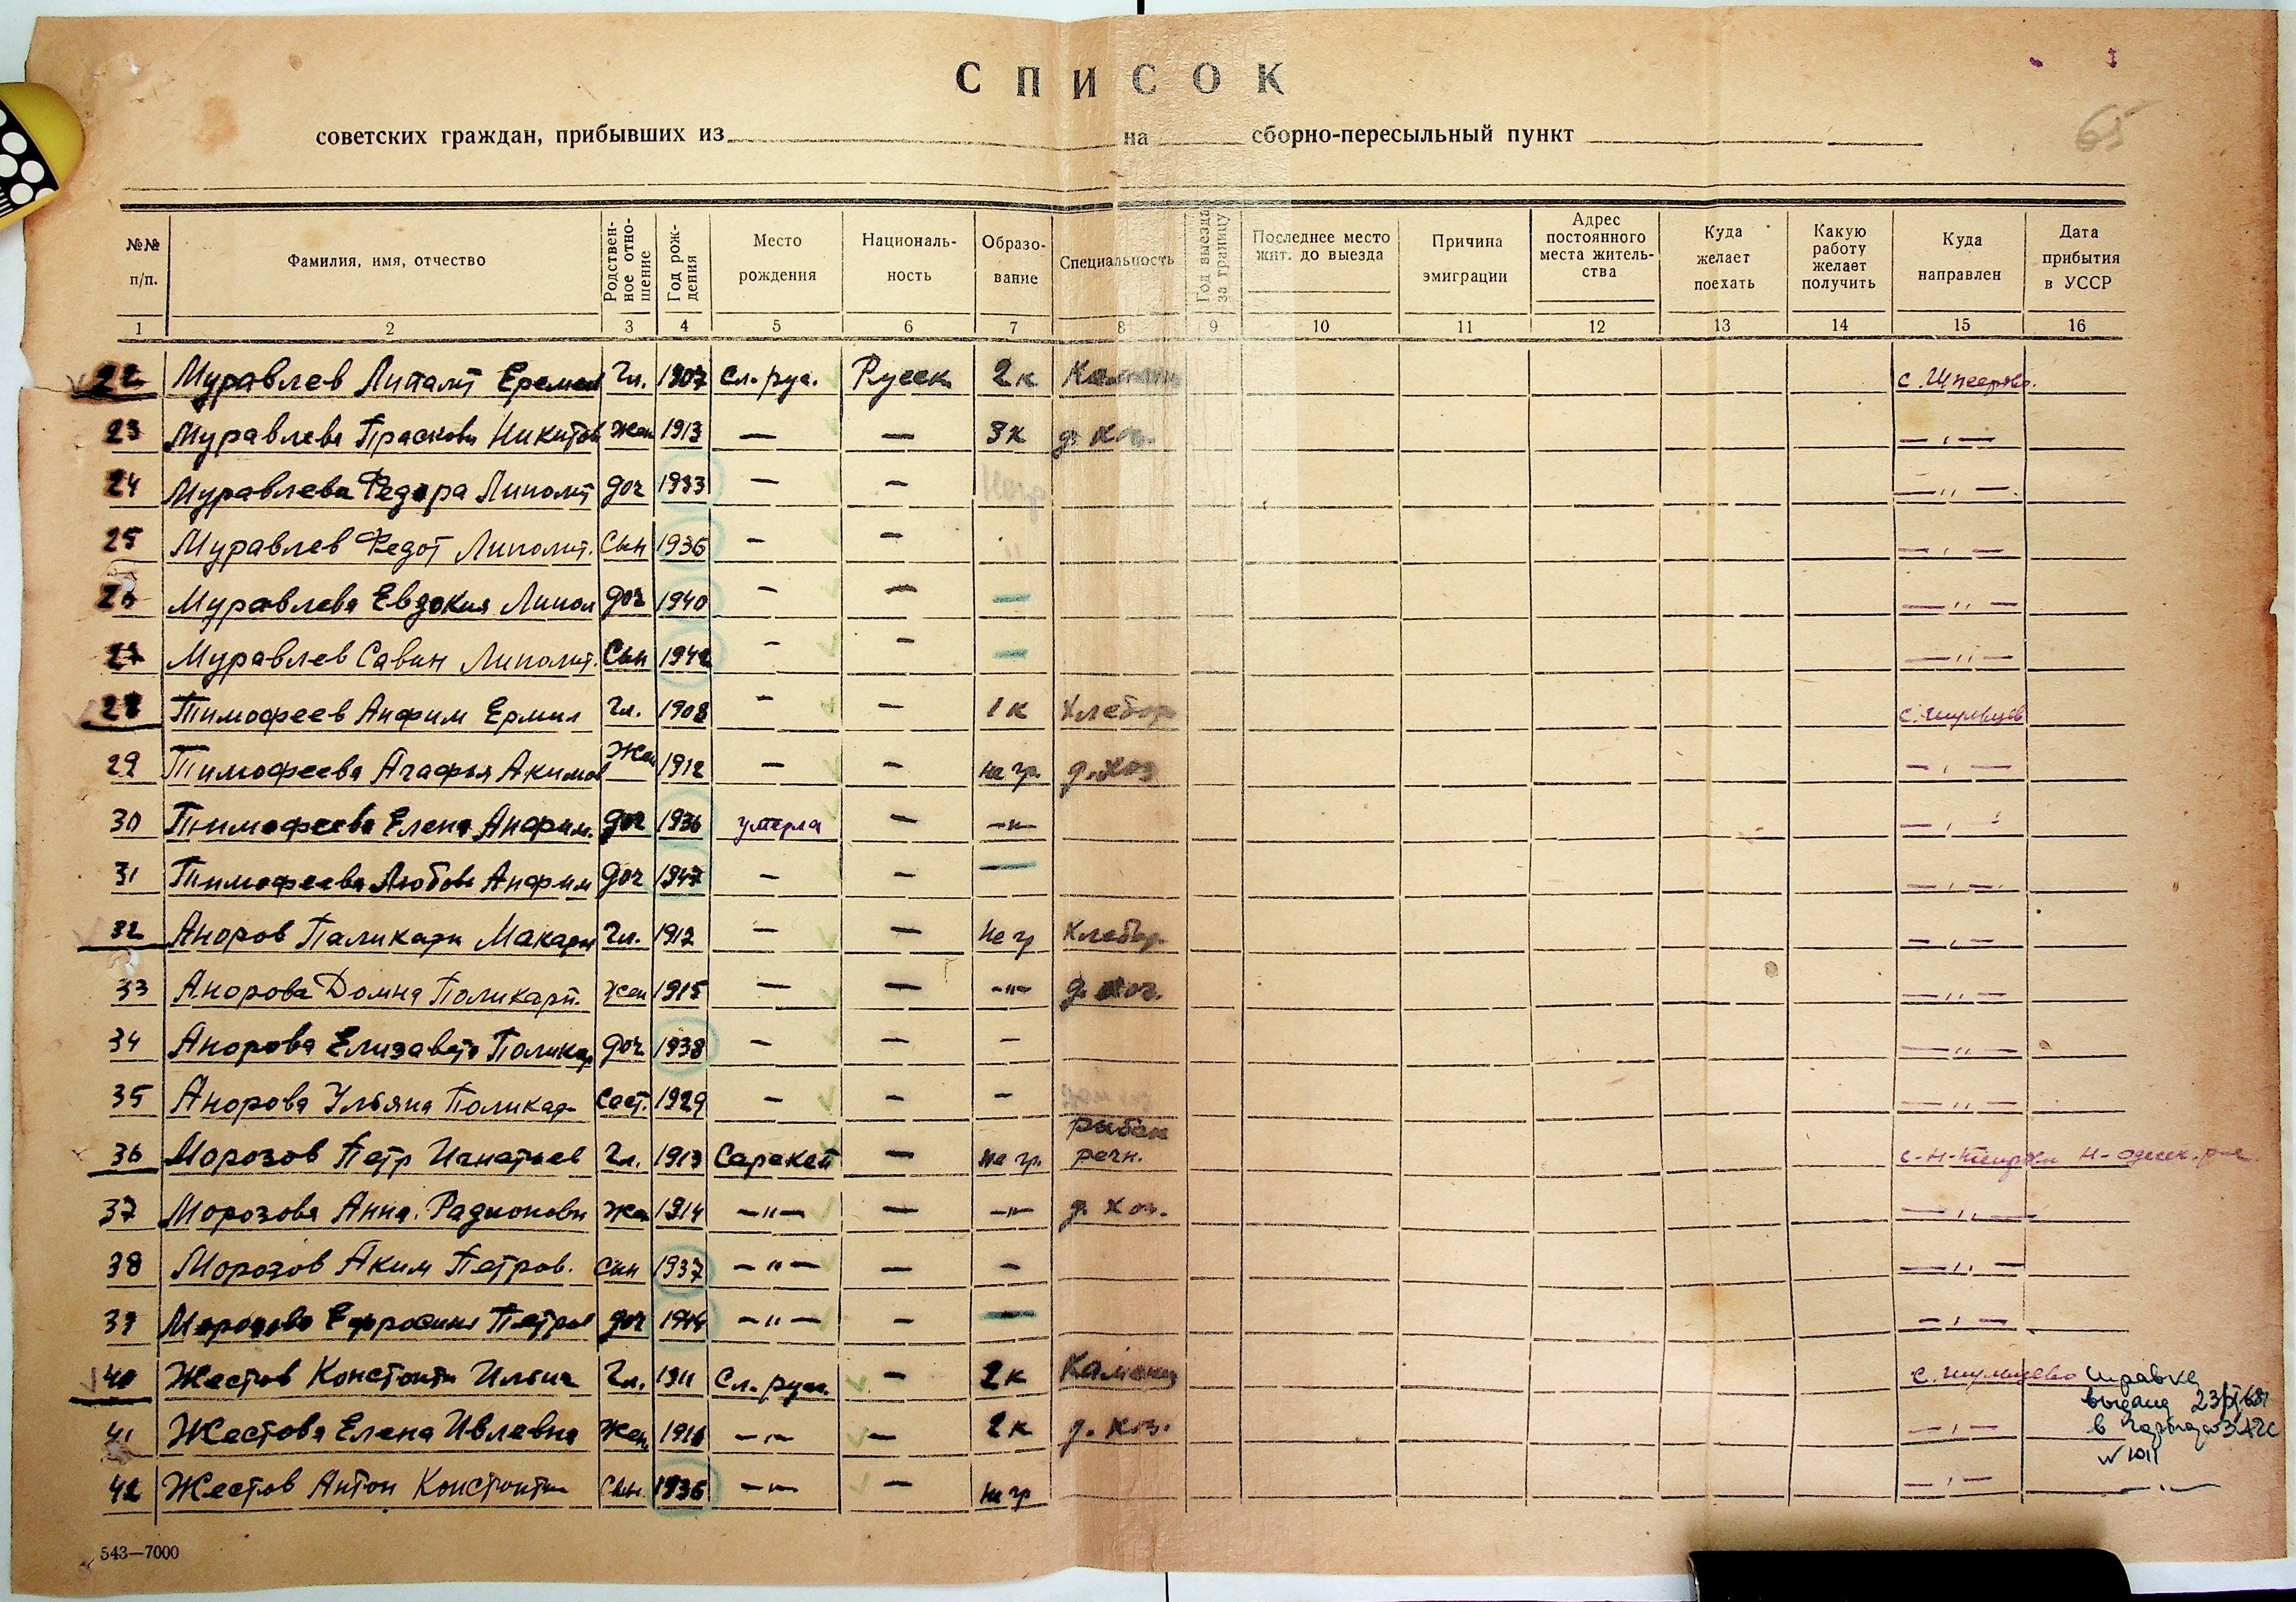 СПИСОК
65
советских граждан, прибывших из на сборно-пересыльный пункт
№№ п/п. Фамилия, имя, отчество Родствен-ное отно-шение Год рож-дения Место рождения Националь-ность Образо-вание Специальность Год выезда за границу Последнее место жит. до выезда Причина эмиграции Адрес постоянного места житель-ства Куда желает поехать Какую работу желает получить Куда направлен Дата прибытия в УССР
1 2 3 4 5 6 7 8 9 10 11 12 13 14 15 16
22 Муравлев Липалит Еремеев Гл. 1907 Сл. рус. Русск 2к
23 Муравлева Прасковья Никитов жен 1913 — — 3к д. хоз. — " —
24 Муравлева Федора Липолит доч 1933 — — — " —
25 Муравлев Федот Липолит. Сын 1936 — — — " —
26 Муравлева Евдокия Липол доч 1940 — — — — " —
27 Муравлев Савин Липолит. Сын 1942 — — — — " —
28 Тимофеев Анфим Ермил Гл. 1908 — — 1к Хлебор
29 Тимофеева Агафья Акимов жен 1912 — — не гр. д. хоз — " —
30 Тимофеева Елена Анфим. доч 1936 умерла — —"— — " —
31 Тимофеева Любовь Анфим доч 1947 — — — — " —
32 Аноров Паликарп Макари Гл. 1912 — — Не гр Хлебор. — " —
33 Анорова Домна Поликарп. жен 1915 — — —"— д. хоз. — " —
34 Анорова Елизавета Поликар доч 1938 — — — — " —
35 Анорова Ульяна Поликар Сест. 1929 — — — — " —
36 Морозов Петр Игнатьев Гл. 1913 Сарекей — не гр. рыбак речн.
37 Морозова Анна Радионовн жен 1914 —"— — —"— д. хоз. — " —
38 Морозов Аким Петров. сын 1937 —"— — — — " —
39 Морозова Ефросинья Петров доч 1946 —"— — — — " —
40 Жестов Константин Ильич Гл. 1911 Сл. русс. — 2к Каменщ справка
41 Жестова Елена Ивлевна жен 1916 —"— — 2к д. хоз. — " — выдана
42 Жестов Антон Константин Сын. 1936 —"— — не гр — " — — " —
543—7000